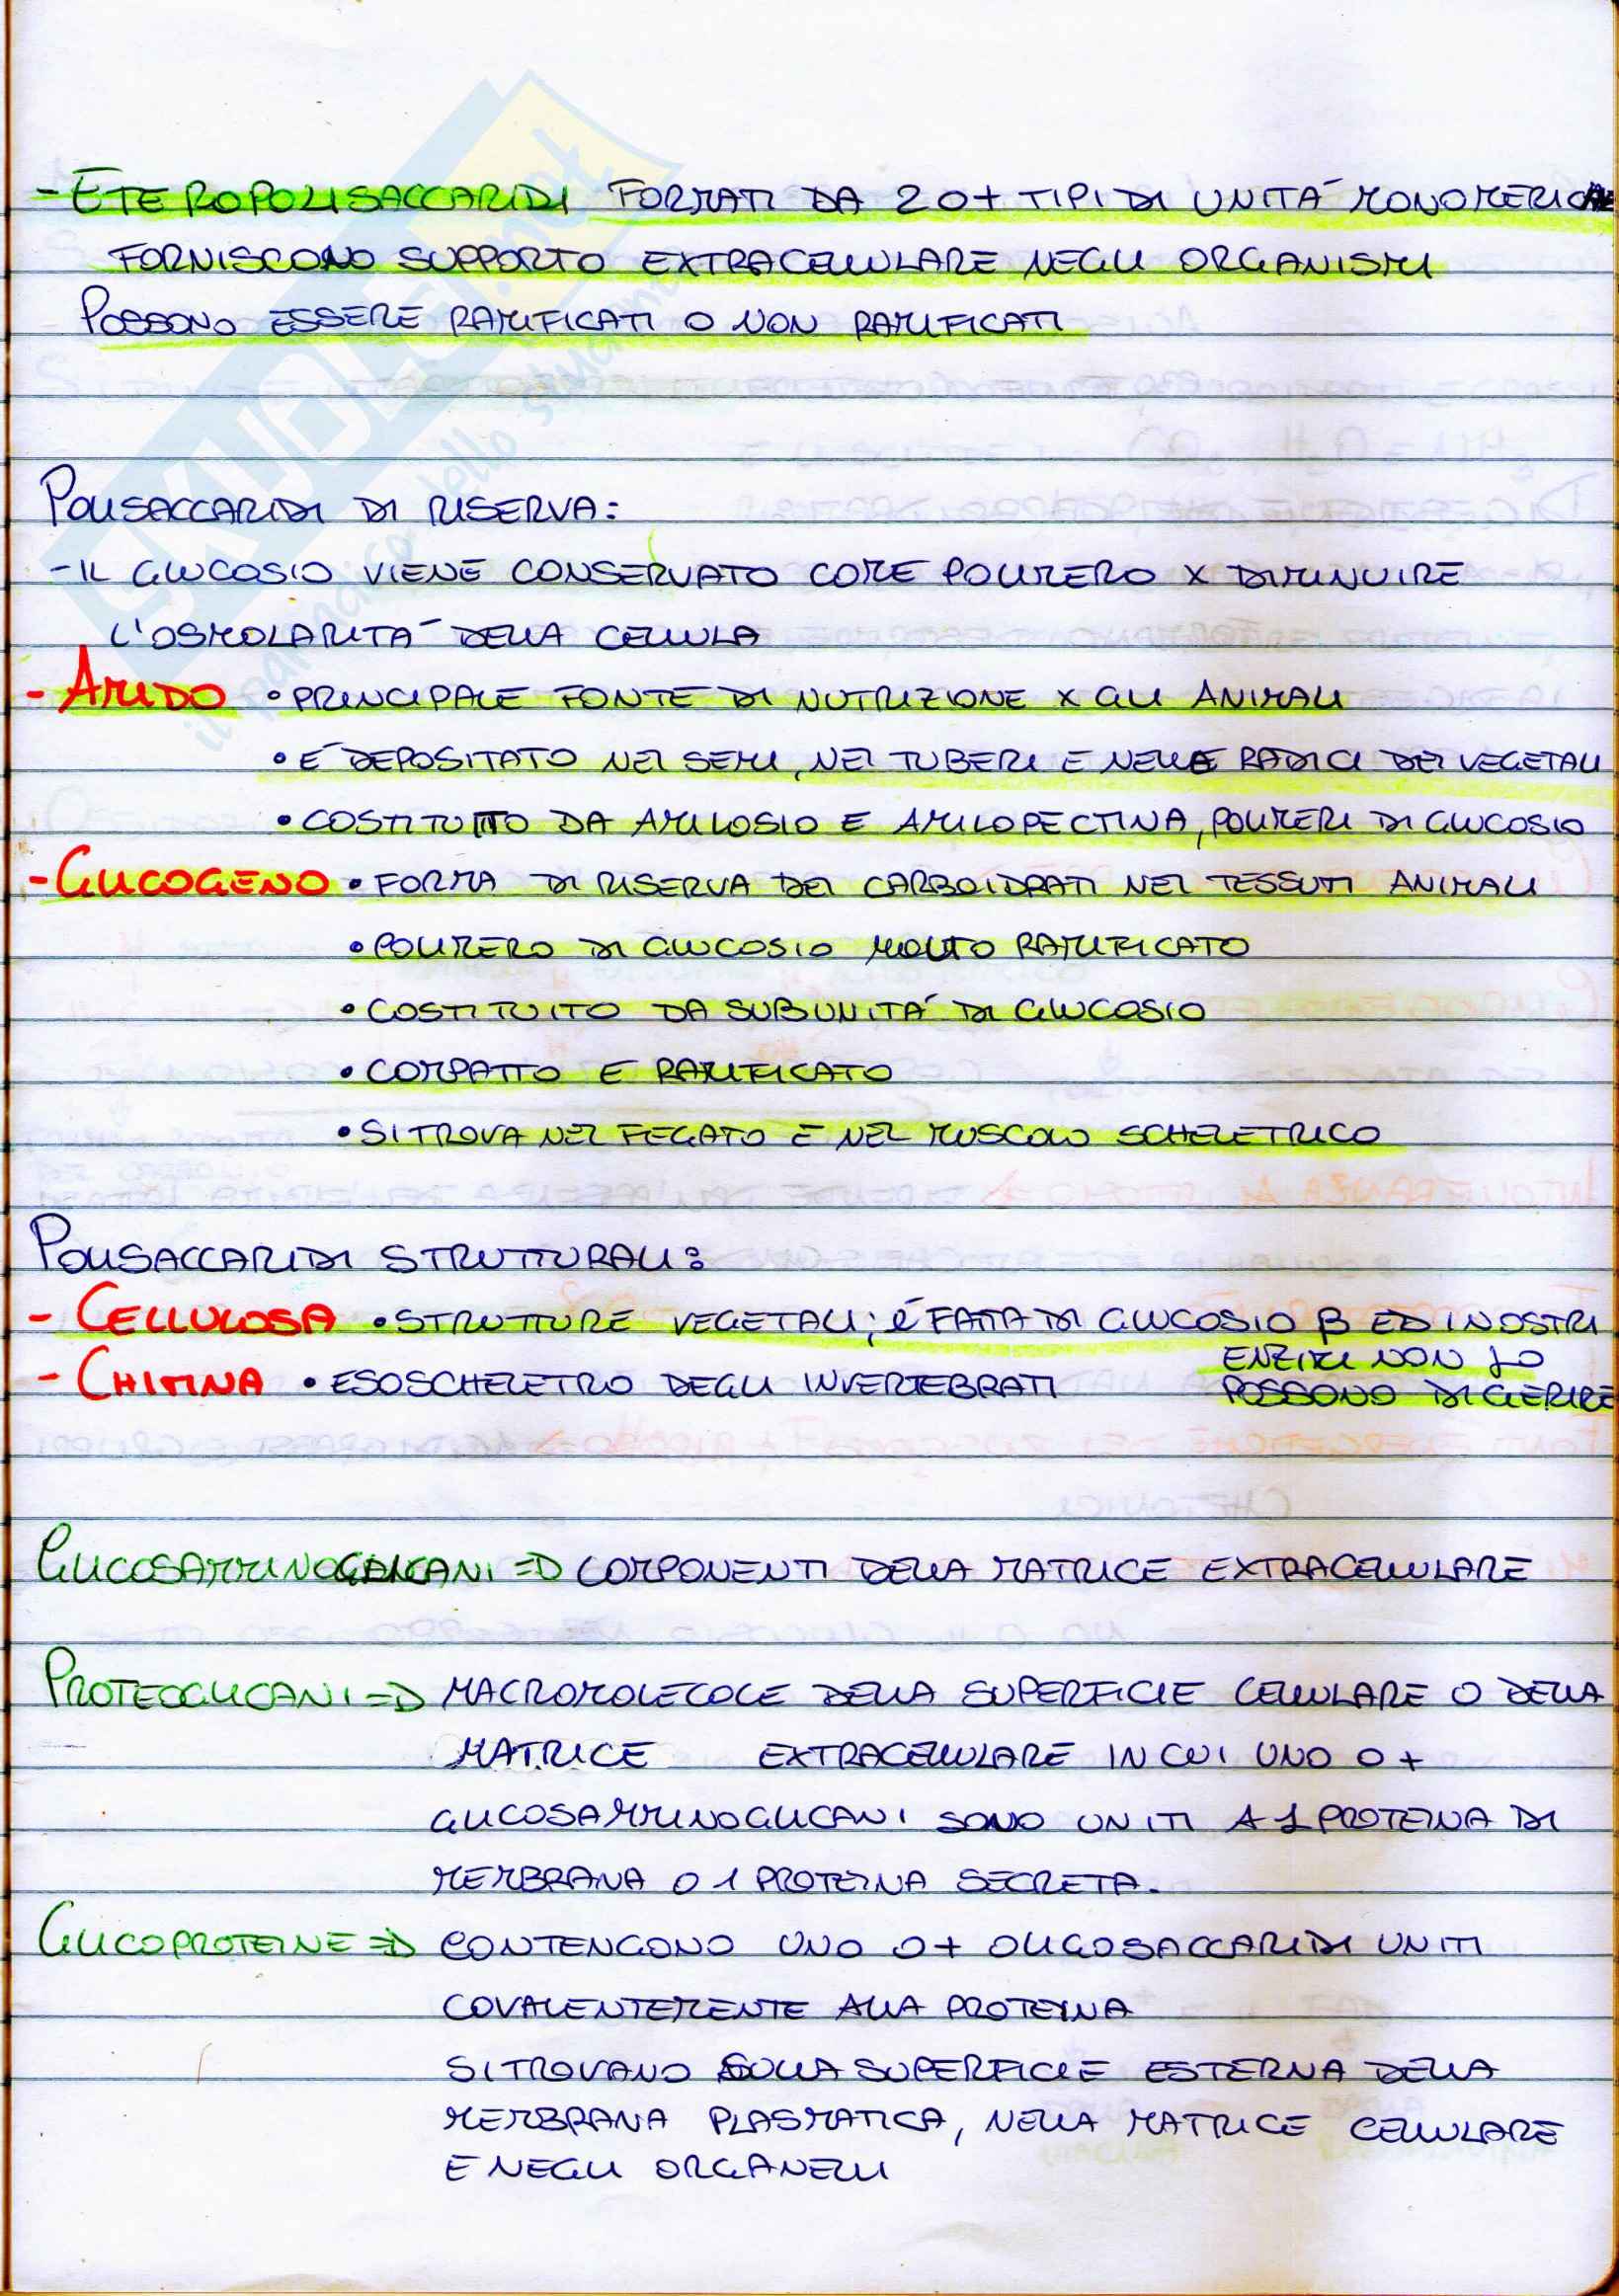 - ETEROPOLISACCARIDI FORMATI DA 2 O + TIPI DI UNITÀ MONOMERICHE
FORNISCONO SUPPORTO EXTRACELLULARE NEGLI ORGANISMI
POSSONO ESSERE RAMIFICATI O NON RAMIFICATI
POLISACCARIDI DI RISERVA:
- IL GLUCOSIO VIENE CONSERVATO COME POLIMERO X DIMINUIRE
L'OSMOLARITÀ DELLA CELLULA
- AMIDO • PRINCIPALE FONTE DI NUTRIZIONE X GLI ANIMALI
• È DEPOSITATO NEI SEMI, NEI TUBERI E NELLE RADICI DEI VEGETALI
• COSTITUITO DA AMILOSIO E AMILOPECTINA, POLIMERI DI GLUCOSIO
- GLICOGENO • FORMA DI RISERVA DEI CARBOIDRATI NEI TESSUTI ANIMALI
• POLIMERO DI GLUCOSIO MOLTO RAMIFICATO
• COSTITUITO DA SUBUNITÀ DI GLUCOSIO
• COMPATTO E RAMIFICATO
• SI TROVA NEL FEGATO E NEL MUSCOLO SCHELETRICO
POLISACCARIDI STRUTTURALI:
- CELLULOSA • STRUTTURE VEGETALI; è FATTA DI GLUCOSIO β ED I NOSTRI
ENZIMI NON LO
POSSONO DIGERIRE
- CHITINA • ESOSCHELETRO DEGLI INVERTEBRATI
GLICOSAMMINOGLICANI => COMPONENTI DELLA MATRICE EXTRACELLULARE
PROTEOGLICANI => MACROMOLECOLE DELLA SUPERFICIE CELLULARE O DELLA
MATRICE EXTRACELLULARE IN CUI UNO O +
GLICOSAMMINOGLICANI SONO UNITI A 1 PROTEINA DI
MEMBRANA O 1 PROTEINA SECRETA.
GLICOPROTEINE => CONTENGONO UNO O + OLIGOSACCARIDI UNITI
COVALENTEMENTE ALLA PROTEINA
SI TROVANO SULLA SUPERFICIE ESTERNA DELLA
MEMBRANA PLASMATICA, NELLA MATRICE CELLULARE
E NEGLI ORGANELLI
SKUOLA.net
il paradiso dello studente